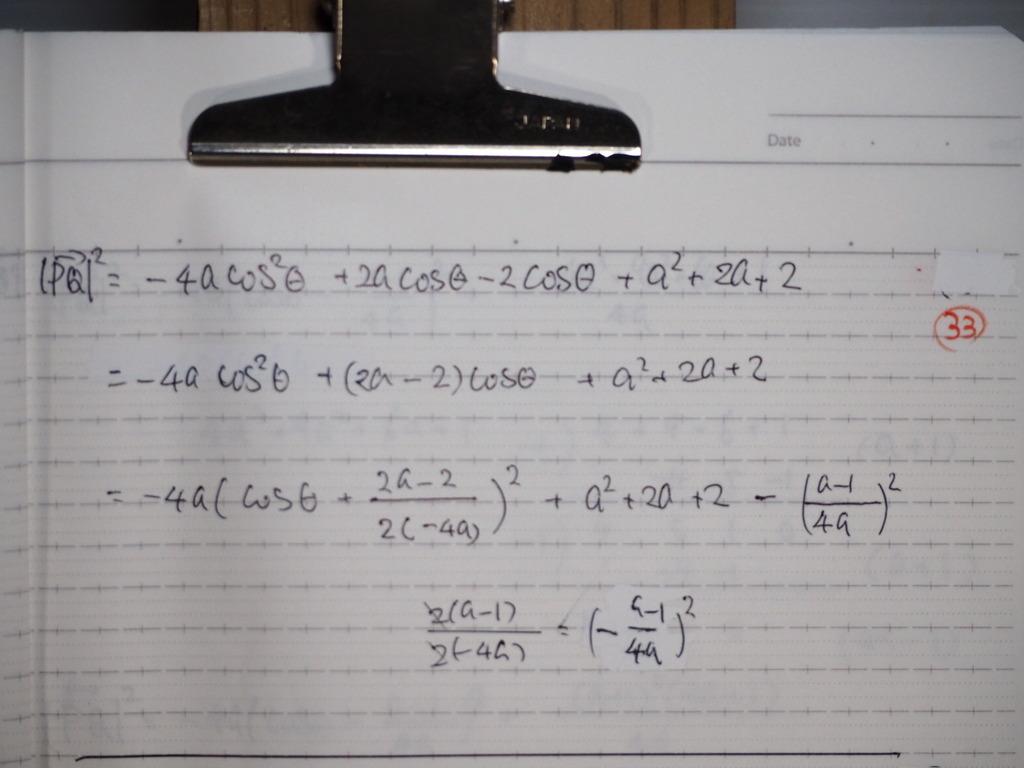 JAPAN
Date
|PQ⃗|² = -4a cos²θ + 2a cosθ - 2 cosθ + a² + 2a + 2
33
= -4a cos²θ + (2a - 2) cosθ + a² + 2a + 2
= -4a( cosθ + \frac{2a-2}{2(-4a)} )² + a² + 2a + 2 - (\frac{a-1}{4a})²
\frac{2(a-1)}{2(-4a)} = (-\frac{a-1}{4a})²